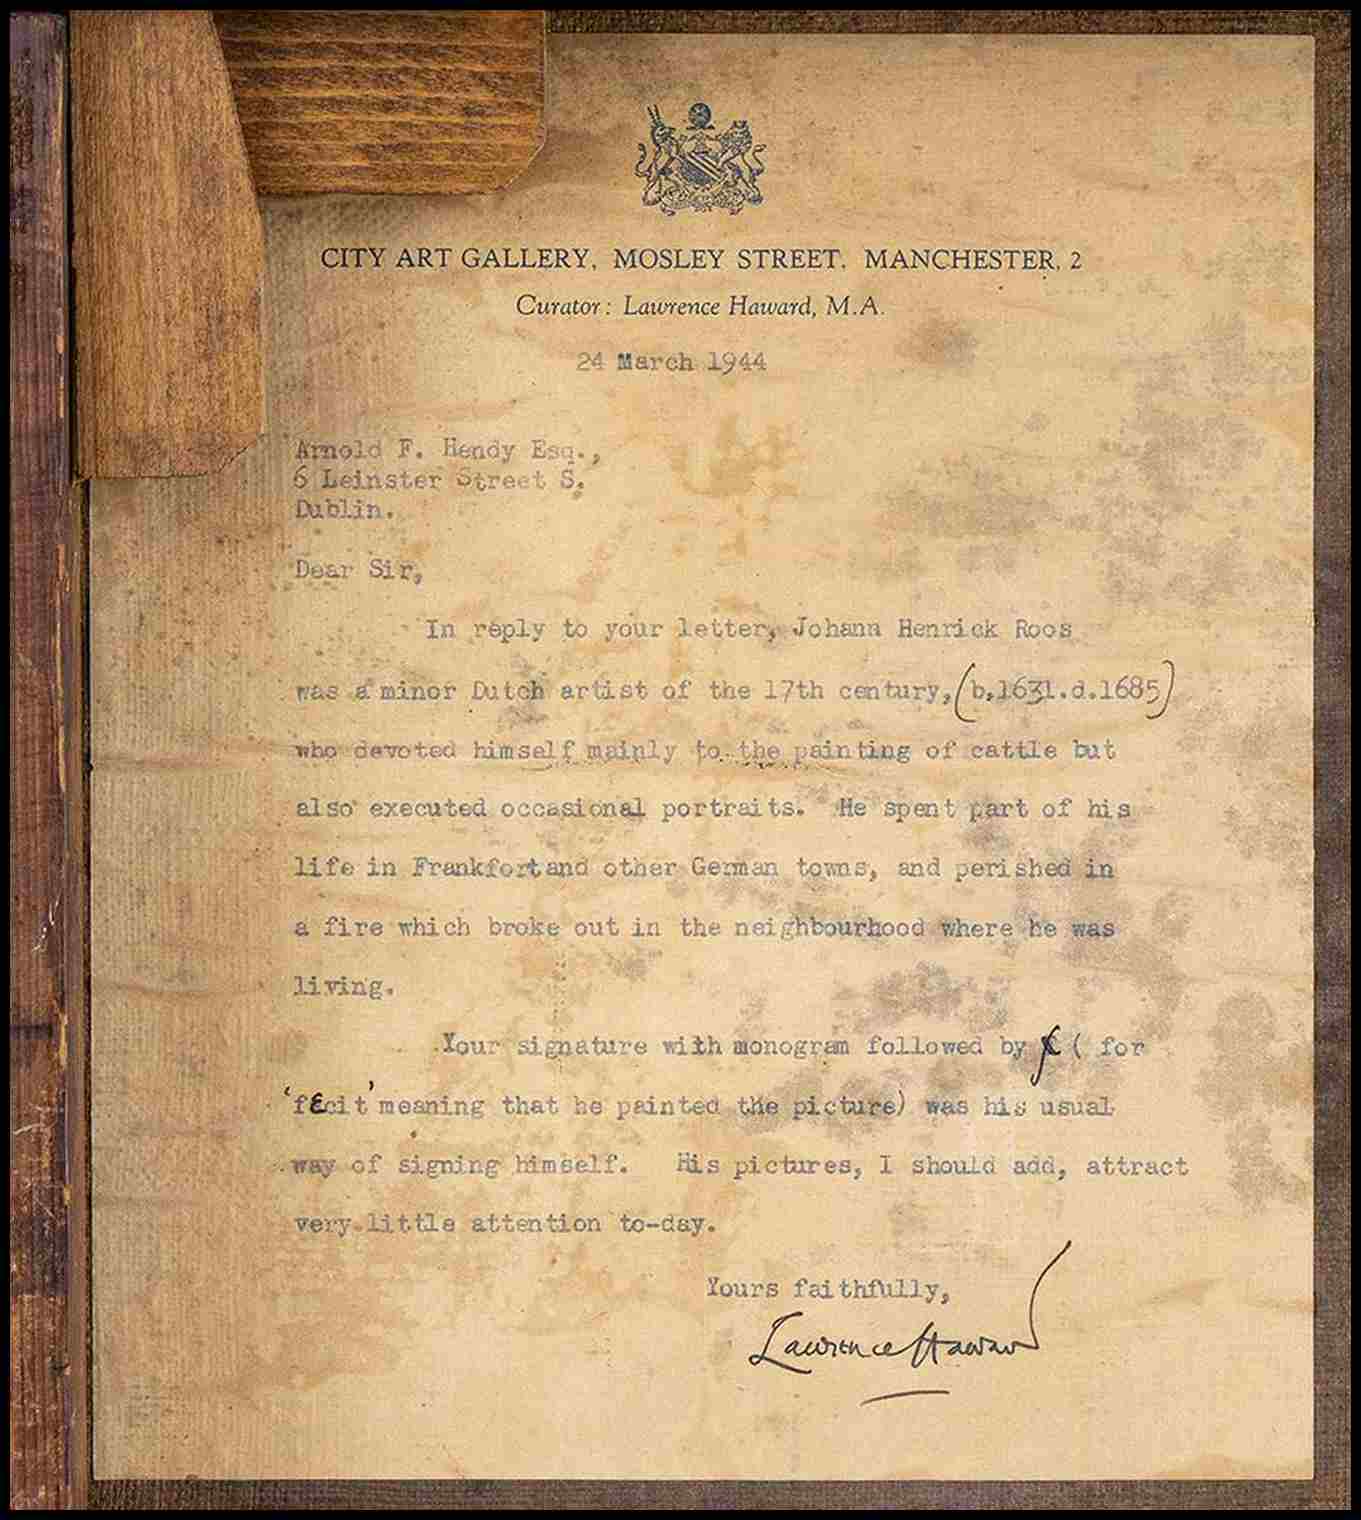 CITY ART GALLERY, MOSLEY STREET, MANCHESTER, 2
Curator: Lawrence Haward, M.A.
24 March 1944
Arnold F. Hendy Esq.,
6 Leinster Street S.
Dublin.
Dear Sir,
In reply to your letter, Johann Henrick Roos
was a minor Dutch artist of the 17th century,(b.1631.d.1685)
who devoted himself mainly to the painting of cattle but
also executed occasional portraits. He spent part of his
life in Frankfort and other German towns, and perished in
a fire which broke out in the neighbourhood where he was
living.
Your signature with monogram followed by f ( for
'fecit' meaning that he painted the picture) was his usual
way of signing himself. His pictures, I should add, attract
very little attention to-day.
Yours faithfully,
Lawrence Haward